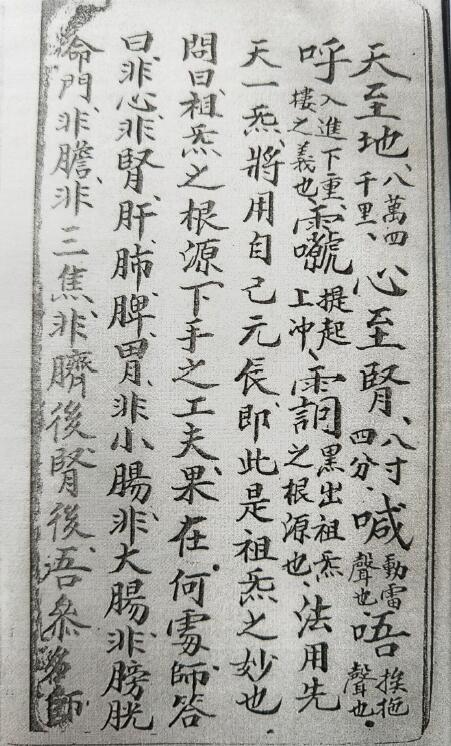 天至地、八萬四千里、心至腎、八寸四分、喊動雷聲也、唔挨拖聲也。
呼入進下重樓之義也、提起上冲、黑出祖炁之根源也、法用先
天一炁、將用自己元辰、即此是祖炁之妙也
問曰、祖炁之根源、下手之工夫、果在何處、師答
曰、非心、非腎、肝、肺、脾、胃、非小腸、非大腸、非膀胱
命門、非膽、非三焦、非臍後、腎後、吾叅名師